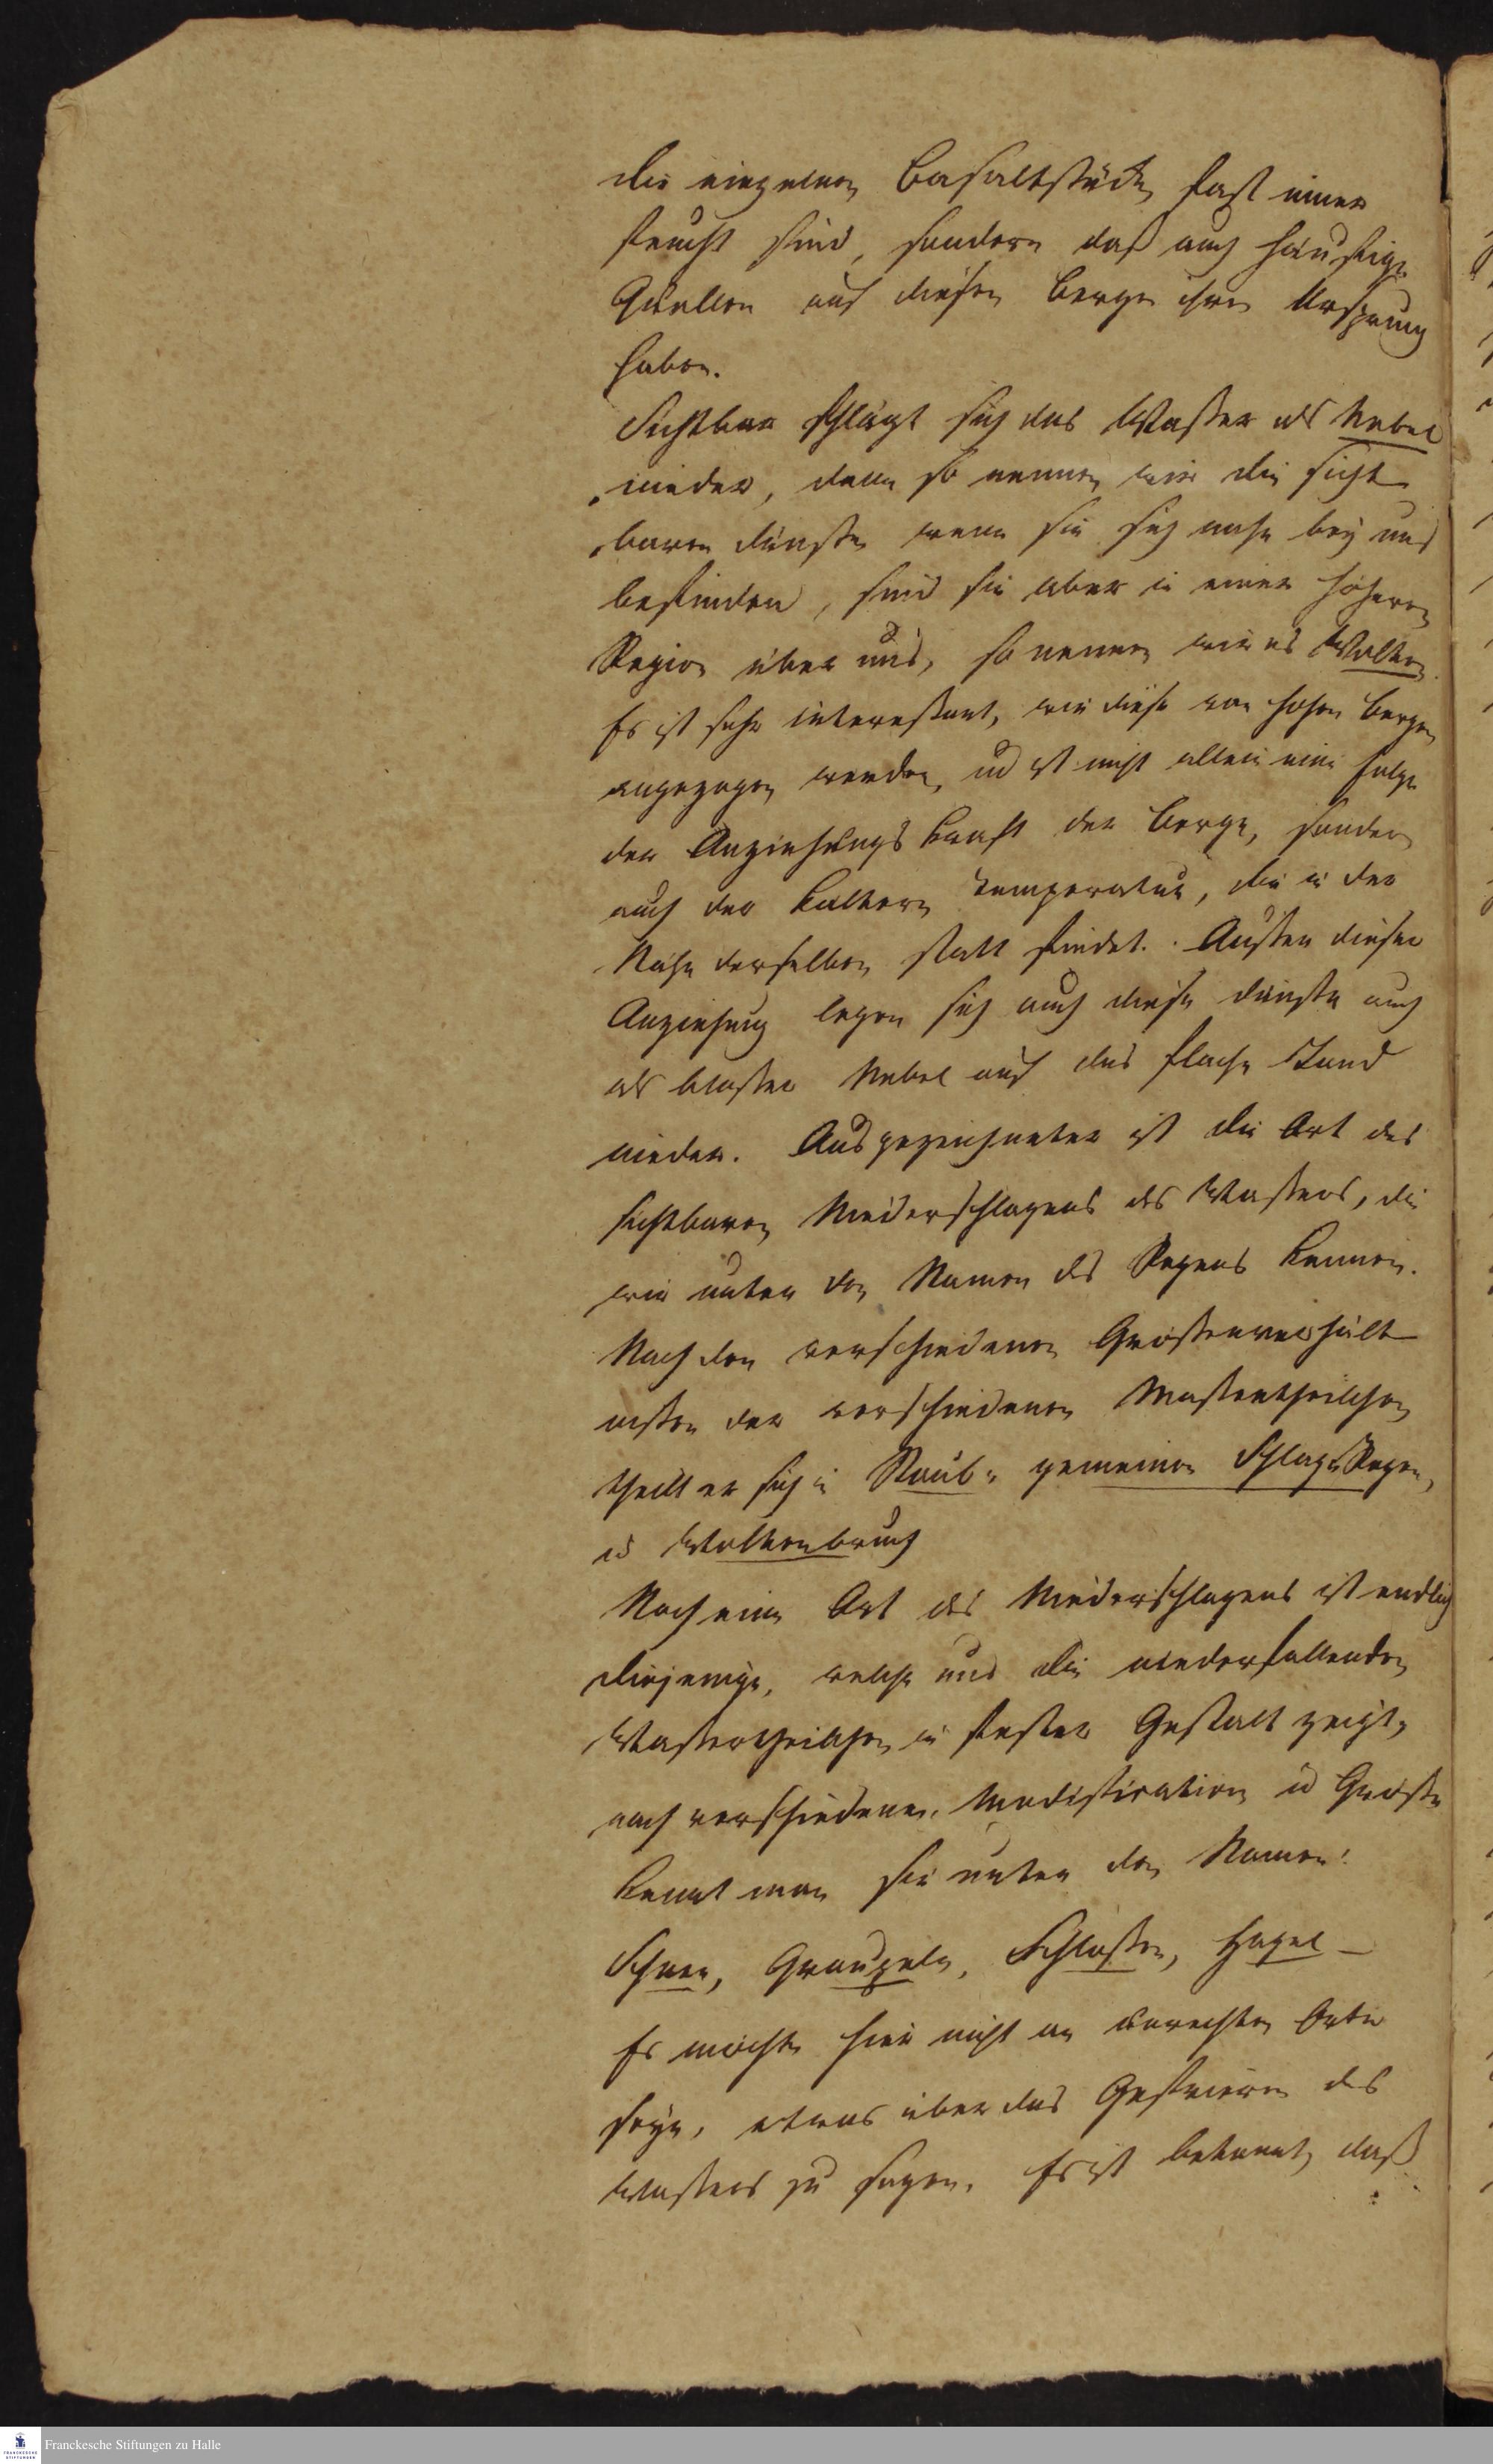 die einzelnen Basaltstücke fast immer
feucht sind, sondern daß auch häufige
Quellen aus diesen Bergen ihren Ursprung
haben.
Sichtbar schlägt sich das Wasser als Nebel
nieder, denn so nennen wir die sicht
baren Dünste wenn sie sich nahe bey uns
befinden, sind sie aber in einer höhern
Region über uns, so nennen wir es Wolken
Es ist sehr interessant, wie diese von hohen Bergen
angezogen werden, und ist nicht allein eine Folge
der Anziehungs Kraft der Berge, sondern
auch der kaltern Temperatur, die in der
Nähe derselben statt findet. Ausser dieser
Anziehung legen sich auch diese Dünste auch
als blosser Nebel auf das flache Land
nieder. Ausgezeichneter ist die Art des
sichtbaren Niederschlagens des Wassers, die
wir unter den Namen des Regens kennen.
Nach den verschiedenen Grössenverhält
nissen der verschiedenen Wassertheilchen
theilt er sich in Staub- gemeinen Schlag-Regen,
u Wolkenbruch
Noch eine Art des Niederschlagens ist endlich
diejenige, welche uns die niederfallenden
Wassertheilchen in fester Gestalt zeigt,
nach verschiedener Modification u Grösse
kennt man sie unter den Namen:
Schnee, Graupeln, Schlossen, Hagel –
Es möchte hier nicht am unrechten Orte
seyn, etwas über das Gefrieren des
Wassers zu sagen. Es ist bekannt, daß
Franckesche Stiftungen zu Halle